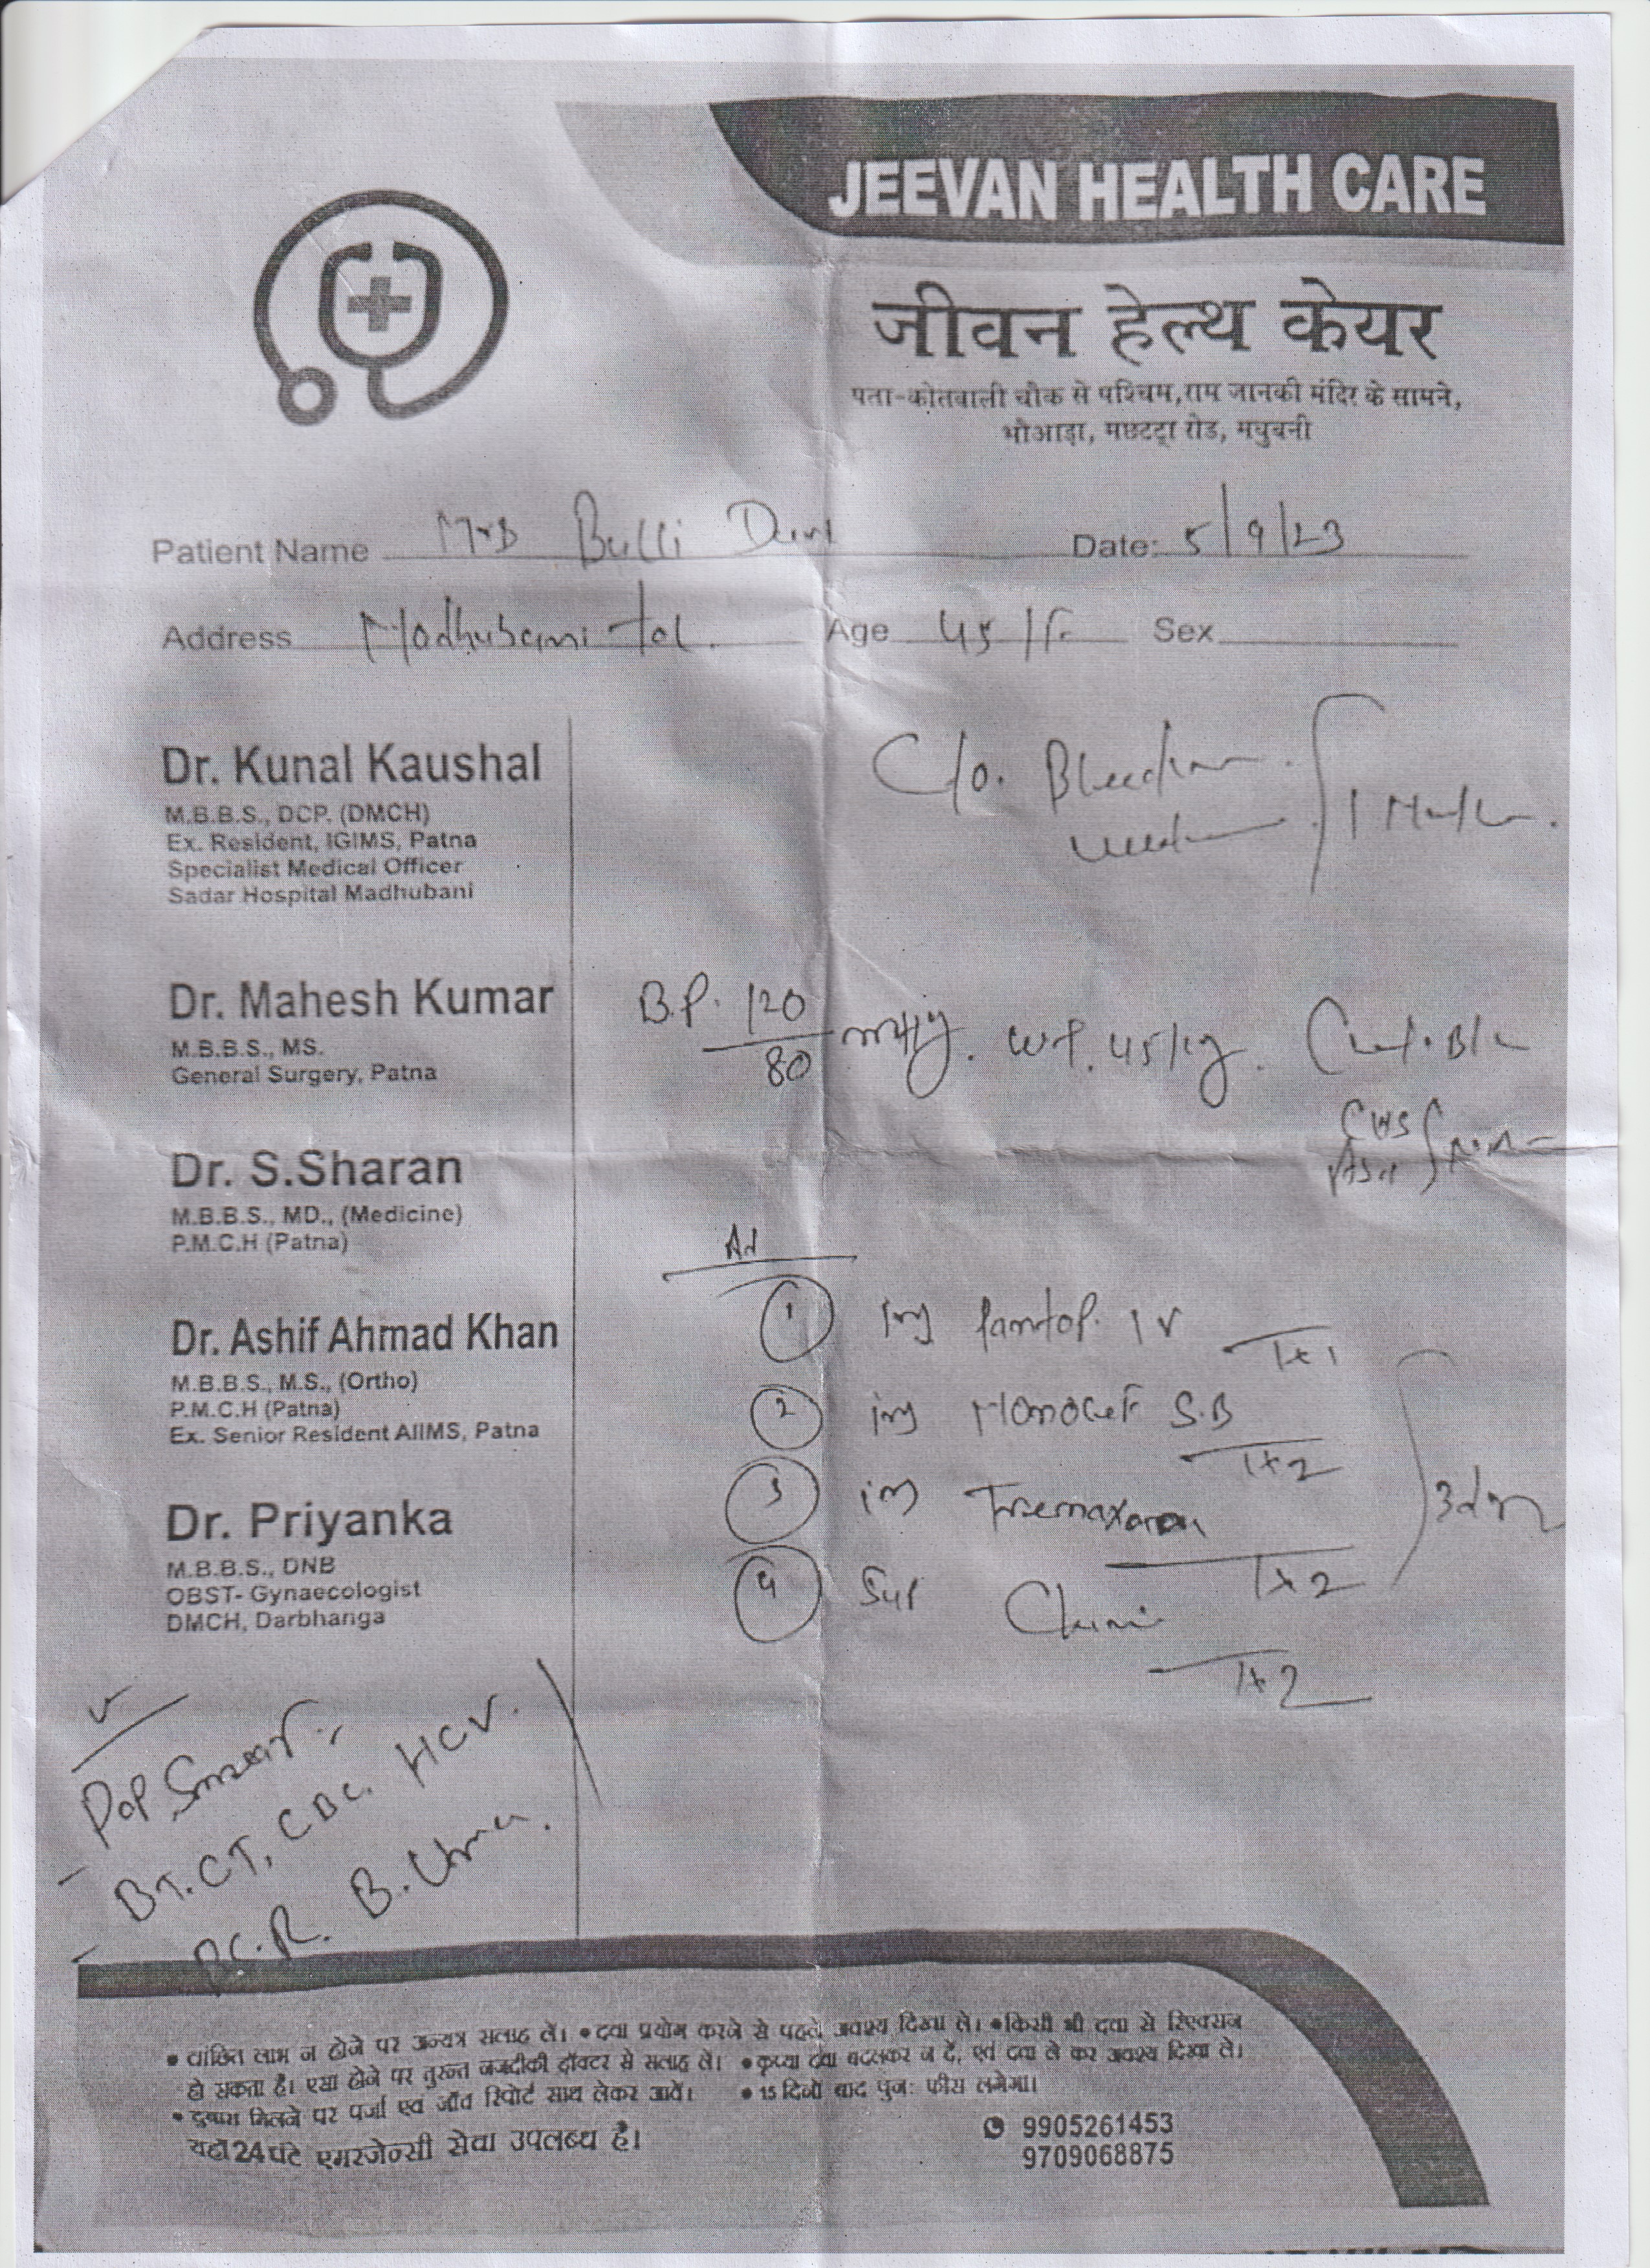 JEEVAN HEALTH CARE
जीवन हेल्थ केयर
पता-कोतवाली चौक से पश्चिम,राम जानकी मंदिर के सामने,
भौआड़ा, रोड, मधुबनी
Patient Name Mrs Bulli Devi Date: 5/9/23
Address Madhubani Tol. Age 45/F. Sex
Dr. Kunal Kaushal
M.B.B.S., DCP. (DMCH)
Ex. Resident, IGIMS, Patna
Specialist Medical Officer
Sadar Hospital Madhubani
C/o.
Dr. Mahesh Kumar
M.B.B.S., MS.
General Surgery, Patna
B.P. 120/80 mmHg. Wt. 45 kg. Chest. B/L
CVS
Dr. S.Sharan
M.B.B.S., MD., (Medicine)
P.M.C.H (Patna)
Dr. Ashif Ahmad Khan
M.B.B.S., M.S., (Ortho)
P.M.C.H (Patna)
Ex. Senior Resident AIIMS, Patna
Dr. Priyanka
M.B.B.S., DNB
OBST- Gynaecologist
DMCH, Darbhanga
1 inj Pantop. IV 1x1
2 inj Monocef S.B 1x2
3 inj 1x2
4 Syp 1x2
3 days
Pap Smear
BT. CT, CBC. HCV.
B. Urea.
• वांछित लाभ न होने पर अन्यत्र सलाह लें। • दवा प्रयोग करने से पहले अवश्य दिखा लें। • किसी भी दवा से रिएक्शन
हो सकता है। एसा होने पर तुरन्त नजदीकी डॉक्टर से सलाह लें। • कृप्या दवा बदलकर न दें, एवं दवा ले कर अवश्य दिखा लें।
• दुबारा मिलने पर पर्जा एवं जाँच रिपोर्ट साथ लेकर आवें। • 15 दिनों बाद पुनः फीस लगेगा।
यहाँ 24 घंटे एमरजेन्सी सेवा उपलब्ध है।
9905261453
9709068875